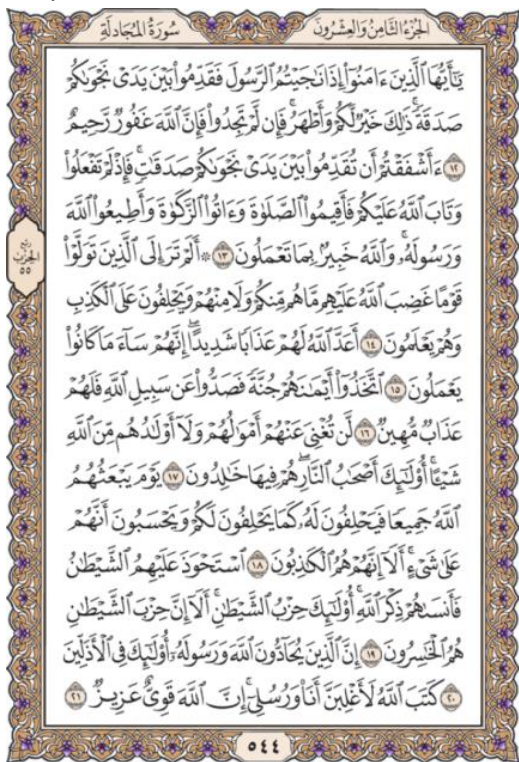 الجزء الثامن والعشرون
سورة المجادلة
يَٰٓأَيُّهَا ٱلَّذِينَ ءَامَنُوٓا۟ إِذَا نَٰجَيْتُمُ ٱلرَّسُولَ فَقَدِّمُوا۟ بَيْنَ يَدَىْ نَجْوَىٰكُمْ
صَدَقَةً ۚ ذَٰلِكَ خَيْرٌ لَّكُمْ وَأَطْهَرُ ۚ فَإِن لَّمْ تَجِدُوا۟ فَإِنَّ ٱللَّهَ غَفُورٌ رَّحِيمٌ
١٢ ءَأَشْفَقْتُمْ أَن تُقَدِّمُوا۟ بَيْنَ يَدَىْ نَجْوَىٰكُمْ صَدَقَٰتٍ ۚ فَإِذْ لَمْ تَفْعَلُوا۟
وَتَابَ ٱللَّهُ عَلَيْكُمْ فَأَقِيمُوا۟ ٱلصَّلَوٰةَ وَءَاتُوا۟ ٱلزَّكَوٰةَ وَأَطِيعُوا۟ ٱللَّهَ
وَرَسُولَهُۥ ۚ وَٱللَّهُ خَبِيرٌۢ بِمَا تَعْمَلُونَ ١٣ ۞ أَلَمْ تَرَ إِلَى ٱلَّذِينَ تَوَلَّوْا۟
قَوْمًا غَضِبَ ٱللَّهُ عَلَيْهِم مَّا هُم مِّنكُمْ وَلَا مِنْهُمْ وَيَحْلِفُونَ عَلَى ٱلْكَذِبِ
وَهُمْ يَعْلَمُونَ ١٤ أَعَدَّ ٱللَّهُ لَهُمْ عَذَابًا شَدِيدًا ۖ إِنَّهُمْ سَآءَ مَا كَانُوا۟
يَعْمَلُونَ ١٥ ٱتَّخَذُوٓا۟ أَيْمَٰنَهُمْ جُنَّةً فَصَدُّوا۟ عَن سَبِيلِ ٱللَّهِ فَلَهُمْ
عَذَابٌ مُّهِينٌ ١٦ لَّن تُغْنِىَ عَنْهُمْ أَمْوَٰلُهُمْ وَلَآ أَوْلَٰدُهُم مِّنَ ٱللَّهِ
شَيْـًٔا ۚ أُو۟لَٰٓئِكَ أَصْحَٰبُ ٱلنَّارِ ۖ هُمْ فِيهَا خَٰلِدُونَ ١٧ يَوْمَ يَبْعَثُهُمُ
ٱللَّهُ جَمِيعًا فَيَحْلِفُونَ لَهُۥ كَمَا يَحْلِفُونَ لَكُمْ ۖ وَيَحْسَبُونَ أَنَّهُمْ
عَلَىٰ شَىْءٍ ۚ أَلَآ إِنَّهُمْ هُمُ ٱلْكَٰذِبُونَ ١٨ ٱسْتَحْوَذَ عَلَيْهِمُ ٱلشَّيْطَٰنُ
فَأَنسَىٰهُمْ ذِكْرَ ٱللَّهِ ۚ أُو۟لَٰٓئِكَ حِزْبُ ٱلشَّيْطَٰنِ ۚ أَلَآ إِنَّ حِزْبَ ٱلشَّيْطَٰنِ
هُمُ ٱلْخَٰسِرُونَ ١٩ إِنَّ ٱلَّذِينَ يُحَآدُّونَ ٱللَّهَ وَرَسُولَهُۥٓ أُو۟لَٰٓئِكَ فِى ٱلْأَذَلِّينَ
٢٠ كَتَبَ ٱللَّهُ لَأَغْلِبَنَّ أَنَا۠ وَرُسُلِىٓ ۚ إِنَّ ٱللَّهَ قَوِىٌّ عَزِيزٌ ٢١
ربع
الحزب
٥٥
٥٤٤